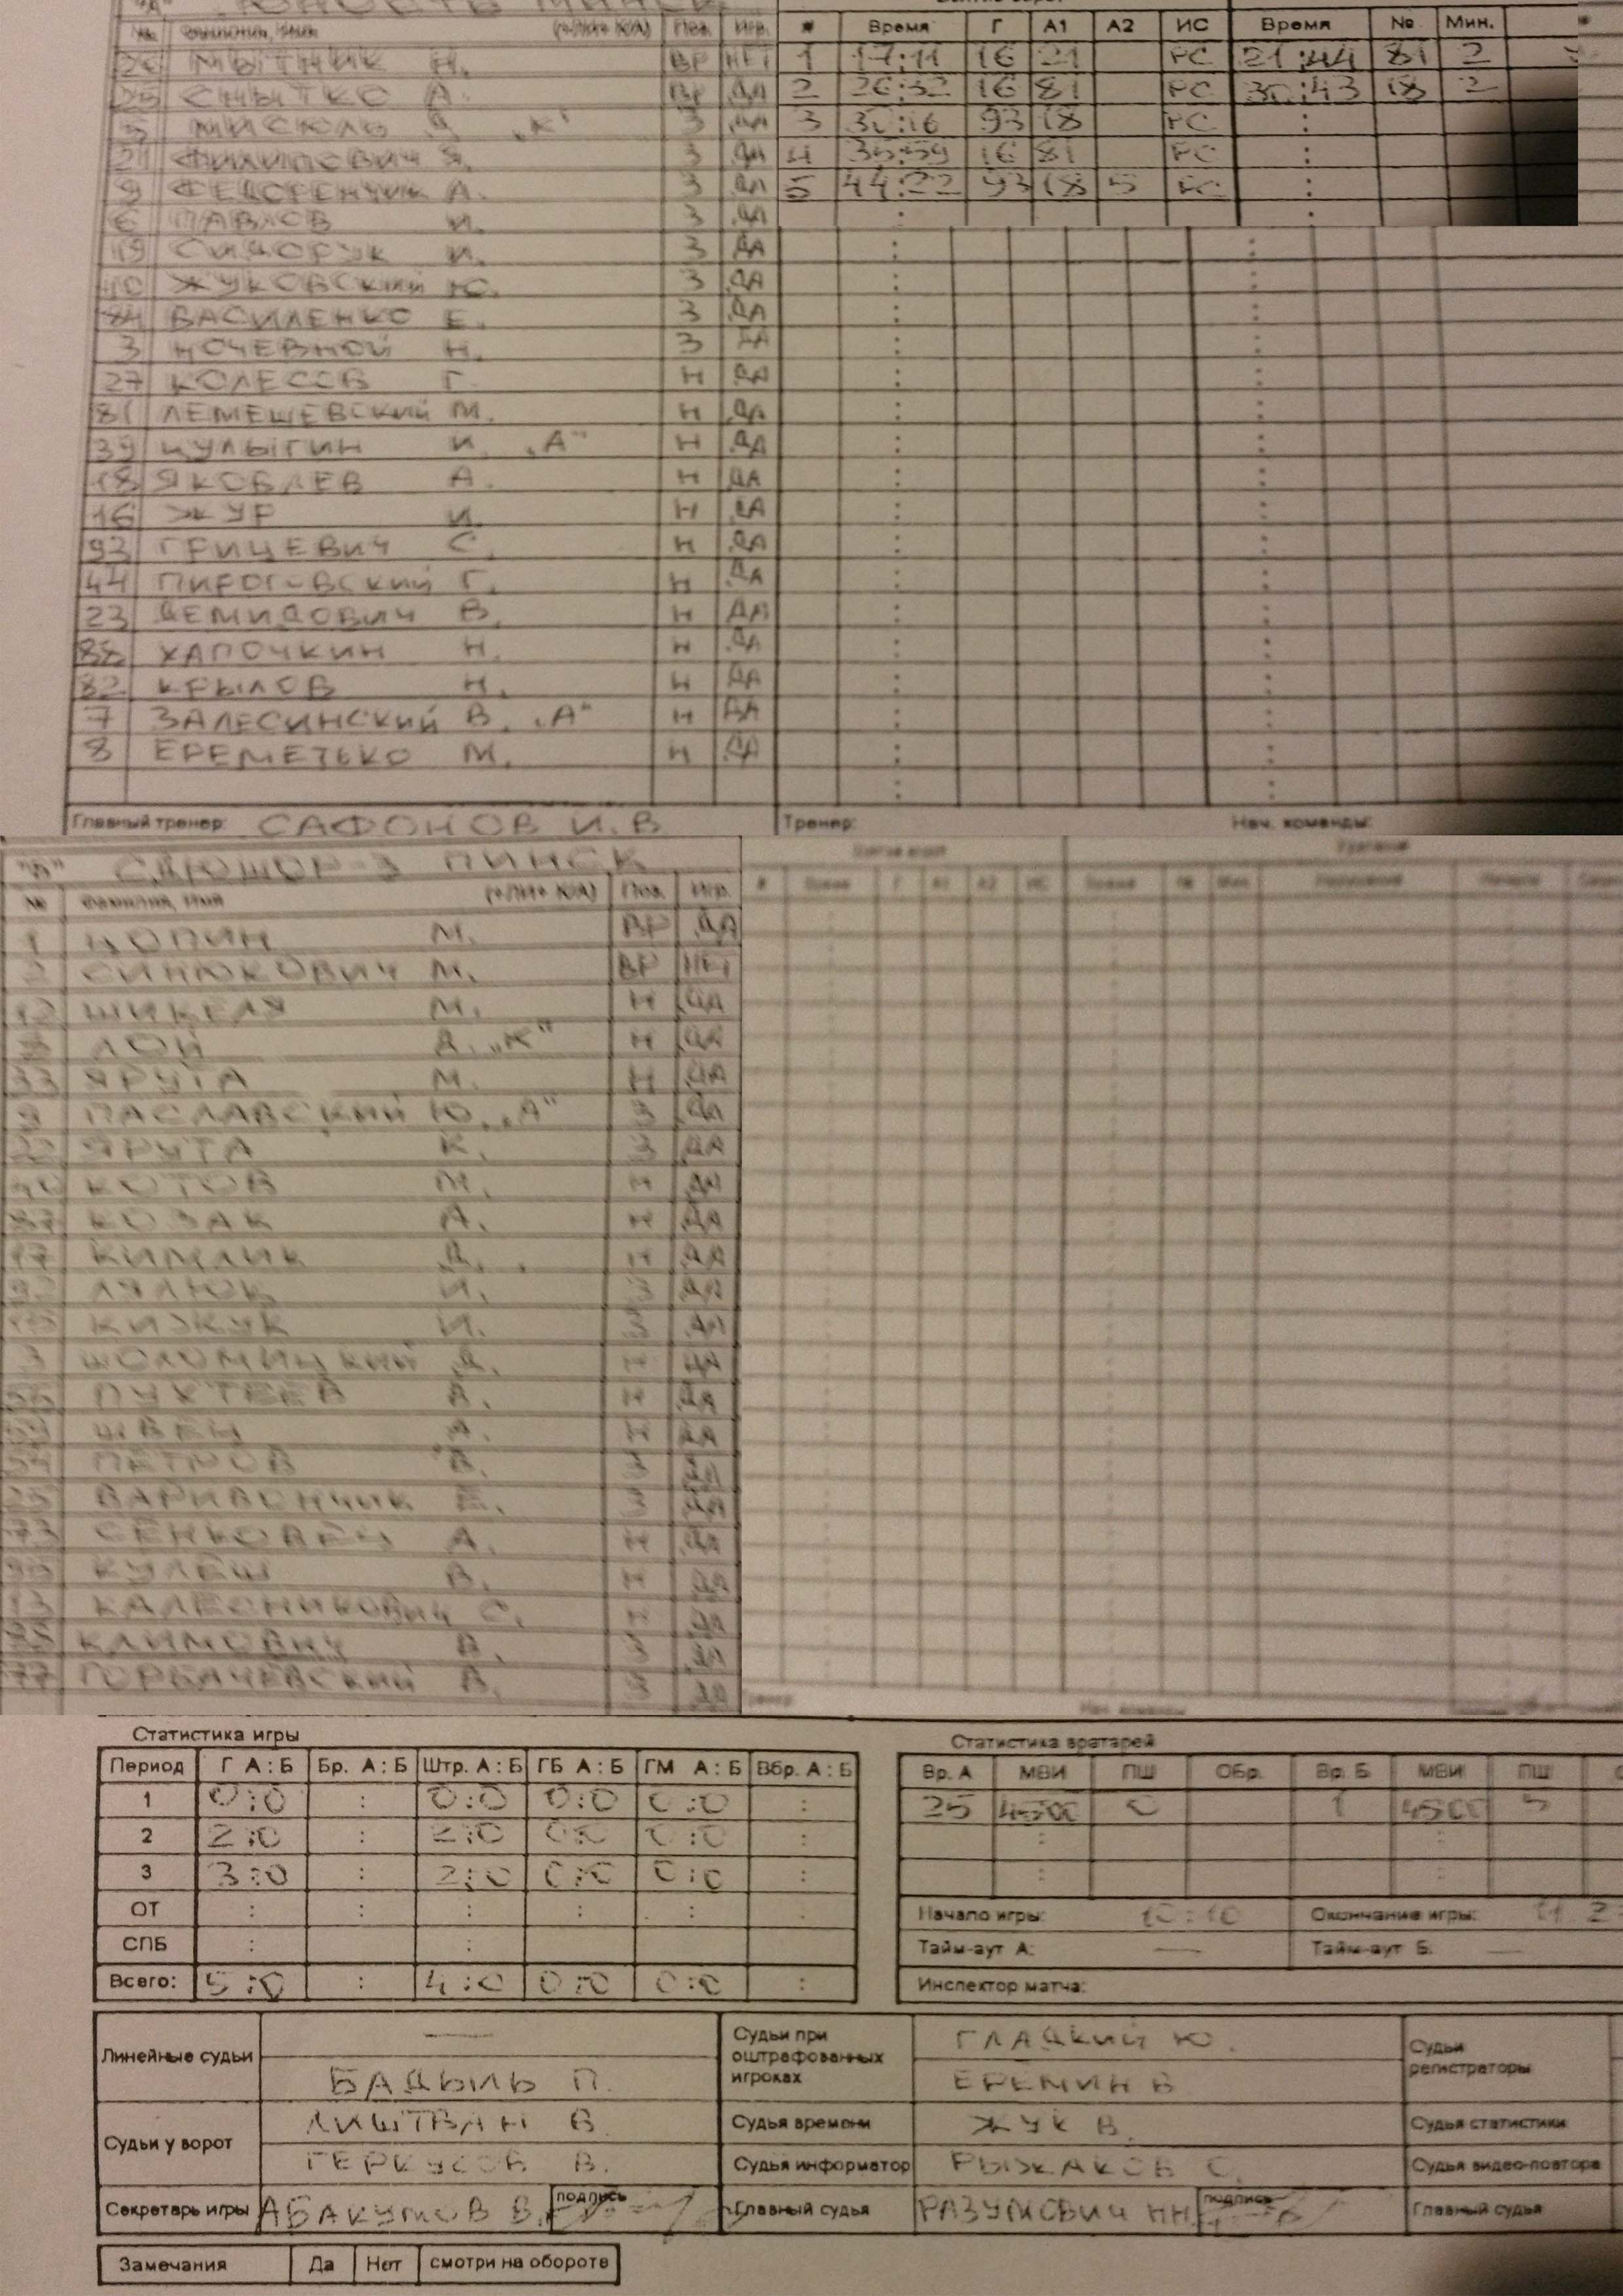 "А" ЮНОСТЬ МИНСК
№ Фамилия, Имя Поз. Игр. # Время Г А1 А2 ИС Время № Мин.
МЫТНИК Н. ВР НЕТ 1 17:11 16 21 РС 21:44 81 2
25 СНЫТКО А. ВР ДА 2 26:32 16 81 РС 30:43 18 2
5 МИСЮЛЬ Я „К" З ДА 3 30:16 93 18 РС :
21 ФИЛИПОВИЧ Я. З ДА 4 35:59 16 81 РС :
9 ФЕДОРЕНЧИК А. З ДА 5 44:22 93 18 5 РС :
6 ПАВЛОВ И. З ДА
19 СИДОРУК И. З ДА
10 ЖУКОВСКИЙ Ю. З ДА
84 ВАСИЛЕНКО Е. З ДА
3 НОЧЕВНОЙ Н. З ДА
27 КОЛЕСОВ Г. Н ДА
81 ЛЕМЕШЕВСКИЙ М. Н ДА
39 КУЛЫГИН И. „А" Н ДА
18 ЯКОВЛЕВ А. Н ДА
16 ЖУР И. Н ДА
93 ГРИЦЕВИЧ С. Н ДА
44 ПИРОГОВСКИЙ Г. Н ДА
23 ДЕМИДОВИЧ В. Н ДА
88 ХАПОЧКИН Н. Н ДА
82 КРЫЛОВ Н. Н ДА
7 ЗАЛЕСИНСКИЙ В. „А" Н ДА
8 ЕРЕМЕТЬКО М. Н ДА
Главный тренер: САФОНОВ И.В Тренер: Нач. команды:
"Б" СДЮШОР-3 ПИНСК
№ Фамилия, Имя Поз. Игр.
1 КОПИН М. ВР ДА
2 СИНЮКОВИЧ М. ВР НЕТ
12 ШИКЕЛЯ М. Н ДА
ЛОЙ Д. „К" Н ДА
33 ЯРУТА М. Н ДА
9 ПАСЛАВСКИЙ Ю. „А" З ДА
22 ЯРУТА К. З ДА
КОТОВ М. Н ДА
87 КОЗАК А. Н ДА
17 КИМЛИК Д. Н ДА
ЛЯЛЮК И. З ДА
КИЖУК И. З ДА
3 ШОЛОМИЦКИЙ Д. Н ДА
ПУХТЕЕВ Н ДА
ШВЕЦ А. Н ДА
ПЕТРОВ В. З ДА
25 ВАРИВОНЧИК Е. З ДА
73 СЕНЬКОВЕЦ А. Н ДА
КУЛЕШ В. Н ДА
13 КАЛЕСНИКОВИЧ С. Н ДА
КЛИМОВИЧ З ДА
77 ГОРБАЧЕВСКИЙ В. З ДА
Статистика игры Статистика вратарей
Период Г А : Б Бр. А : Б Штр. А : Б ГБ А : Б ГМ А : Б Вбр. А : Б Вр. А МВИ ПШ ОБр. Вр. Б МВИ ПШ
1 0:0 : 0:0 0:0 0:0 : 25 4500 0 1 4500 5
2 2:0 : 2:0 0:0 0:0 :
3 3:0 : 2:0 0:0 0:0 :
ОТ : : : : : Начало игры: 10:10 Окончание игры:
СПБ : : Тайм-аут А: — Тайм-аут Б: —
Всего: 5:0 : 4:0 0:0 0:0 : Инспектор матча:
Линейные судьи — БАДЫЛЬ П. Судьи при оштрафованных игроках ГЛАДКИЙ Ю. ЕРЕМИН В Судьи регистраторы
Судьи у ворот ЛИШТВАН В. Судья времени ЖУК В. Судья статистики
ГЕРКУСОВ В. Судья информатор РЫЖАКОВ С. Судья видео-повтора
Секретарь игры АБАКУМОВ В. подпись Главный судья РАЗУМОВИЧ НН. подпись Главный судья
Замечания Да Нет смотри на обороте